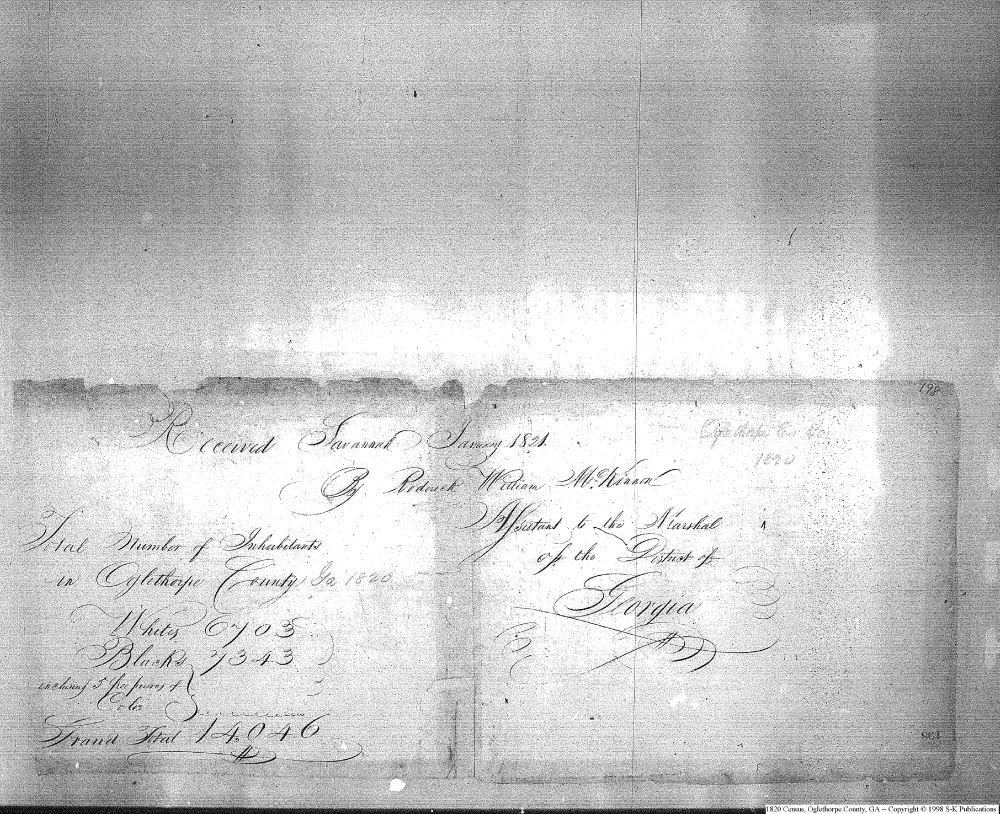 198
Received Savannah January 1821.
By Roderick William McKinnon
Assistant to the Marshal
of the District of
Georgia
Oglethorpe Co. Ga.
1820
Total Number of Inhabitants
in Oglethorpe County Ga 1820
Whites 6703
Blacks 7343
including 5 free persons of
Color
Grand Total 14046
1820 Census, Oglethorpe County, GA -- Copyright © 1998 S-K Publications